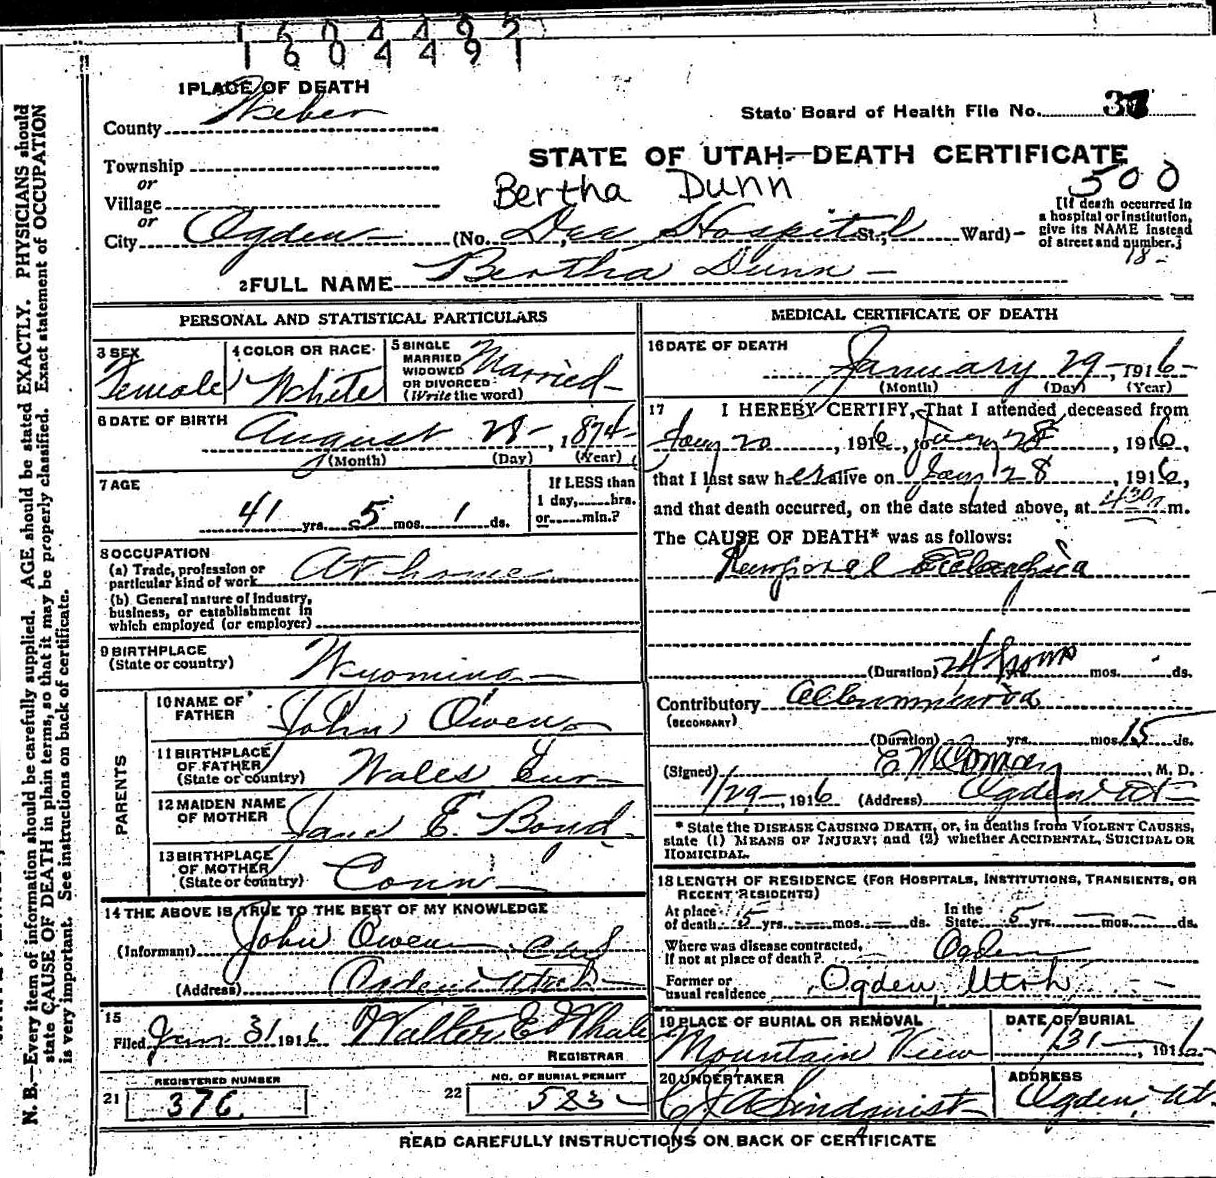 1604492
1604491
1 PLACE OF DEATH
County Weber
State Board of Health File No. 37
Township
or
Village
or
STATE OF UTAH—DEATH CERTIFICATE
Bertha Dunn
500
[If death occurred in
a hospital or institution,
give its NAME instead
of street and number.]
18-
City Ogden (No. Dee Hospital St., Ward)
2 FULL NAME Bertha Dunn
PERSONAL AND STATISTICAL PARTICULARS
3 SEX
Female
4 COLOR OR RACE
White
5 SINGLE
MARRIED
WIDOWED
OR DIVORCED
(Write the word)
Married
6 DATE OF BIRTH
August 28 - , 1874
(Month) (Day) (Year)
7 AGE
41 yrs. 5 mos. 1 ds.
If LESS than
1 day, hrs.
or min.?
8 OCCUPATION
(a) Trade, profession or
particular kind of work At home
(b) General nature of Industry,
business, or establishment in
which employed (or employer)
9 BIRTHPLACE
(State or country) Wyoming
PARENTS
10 NAME OF
FATHER John Owen
11 BIRTHPLACE
OF FATHER
(State or country) Wales Eur
12 MAIDEN NAME
OF MOTHER Jane E. Boyd
13 BIRTHPLACE
OF MOTHER
(State or country) Conn
14 THE ABOVE IS TRUE TO THE BEST OF MY KNOWLEDGE
(Informant) John Owen
(Address) Ogden Utah
15
Filed Jan 31 1916 Walter E Whalen
REGISTRAR
REGISTERED NUMBER
21 376
NO. OF BURIAL PERMIT
22 523
MEDICAL CERTIFICATE OF DEATH
16 DATE OF DEATH
January 29 - , 1916
(Month) (Day) (Year)
17 I HEREBY CERTIFY, That I attended deceased from
Jany 20 , 1916, to Jany 28 , 1916,
that I last saw her alive on Jany 28 , 1916,
and that death occurred, on the date stated above, at 430 m.
The CAUSE OF DEATH* was as follows:
Eclampsia
(Duration) 24 hours mos. ds.
Contributory
(SECONDARY)
(Duration) yrs. mos. 15 ds.
(Signed) M. D.
1/29 - , 1916 (Address) Ogden Ut
* State the DISEASE CAUSING DEATH, or, in deaths from VIOLENT CAUSES,
state (1) MEANS OF INJURY; and (2) whether ACCIDENTAL, SUICIDAL OR
HOMICIDAL.
18 LENGTH OF RESIDENCE (FOR HOSPITALS, INSTITUTIONS, TRANSIENTS, OR
RECENT RESIDENTS)
At place
of death yrs. mos. ds. In the
State 5 yrs. mos. ds.
Where was disease contracted,
If not at place of death? Ogden
Former or
usual residence Ogden, Utah
19 PLACE OF BURIAL OR REMOVAL
Mountain View
DATE OF BURIAL
1/31 , 1916
20 UNDERTAKER
C J A Lindquist
ADDRESS
Ogden, Ut.
READ CAREFULLY INSTRUCTIONS ON BACK OF CERTIFICATE
N. B.—Every item of information should be carefully supplied. AGE should be stated EXACTLY. PHYSICIANS should
state CAUSE OF DEATH in plain terms, so that it may be properly classified. Exact statement of OCCUPATION
is very important. See instructions on back of certificate.